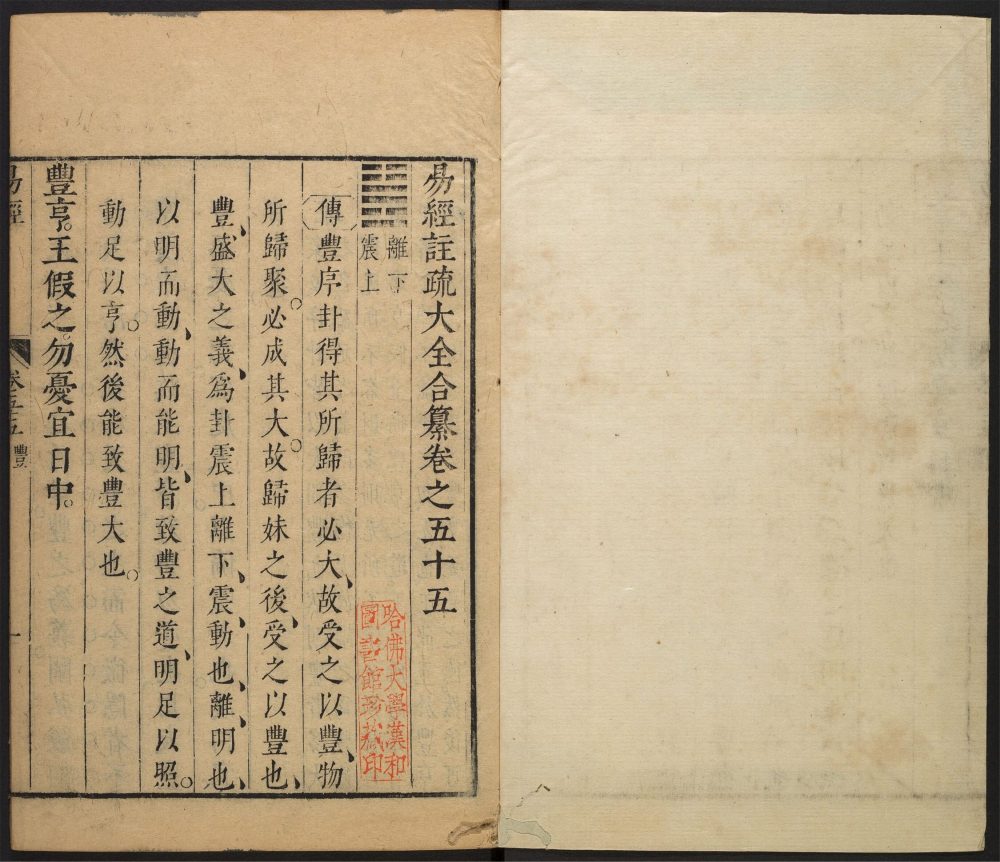 易經註疏大全合纂卷之五十五
離下
震上
傳豐序卦得其所歸者必大、故受之以豐、物
所歸聚。必成其大。故歸妹之後、受之以豐也、
豐、盛大之義、爲卦震上離下、震、動也、離、明也、
以明而動、動而能明、皆致豐之道、明足以照。
動足以亨。然後能致豐大也。
豐亨。王假之。勿憂宜日中。
易經
卷五十五
豐
一
哈佛大學漢和
圖書館珍藏印